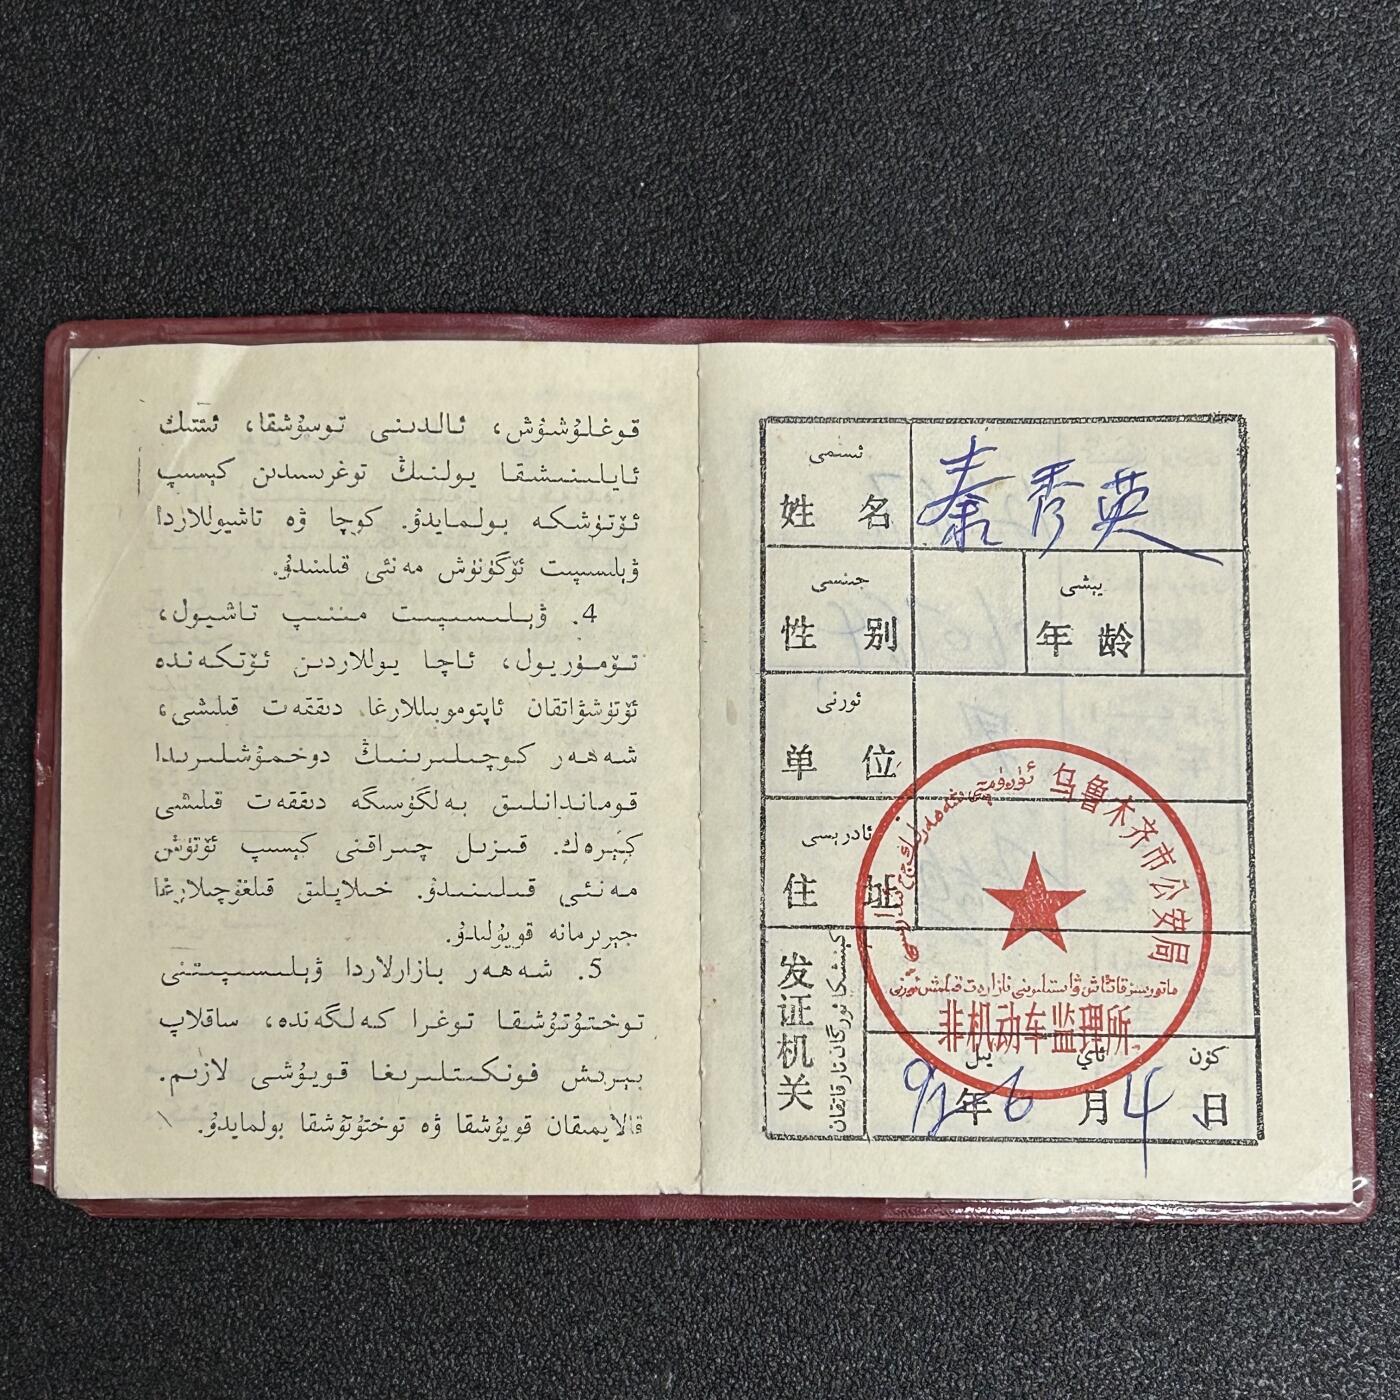 قوغلۇشۇش، ئالدىنى توسۇشقا، ئىتتىك
ئايلىنىشقا يولنىڭ توغرىسىدىن كېسىپ
ئۆتۈشكە بولمايدۇ. كوچا ۋە تاشيوللاردا
ۋېلىسىپىت ئۆگۈنۈش مەنئى قىلىندۇ.
4. ۋېلىسىپىت مىنىپ تاشيول،
تۆمۈريول، ئاچا يوللاردىن ئۆتكەندە
ئۆتۈشۋاتقان ئاپتوموبىللارغا دىققەت قىلىشى،
شەھەر كوچىلىرىنىڭ دوخمۇشلىرىدا
قوماندانلىق بەلگۈسىگە دىققەت قىلىشى
كېرەك. قىزىل چىراقنى كېسىپ ئۆتۈش
مەنئى قىلىنىدۇ. خىلاپلىق قىلغۇچىلارغا
جېرىرمانە قويۇلىدۇ.
5. شەھەر بازارلاردا ۋېلىسىپىتنى
توختۇتۇشقا توغرا كەلگەندە، ساقلاپ
بېرىش فونكىتلىرىغا قويۇشى لازىم.
قالايمىقان قويۇشقا ۋە توختۇتۇشقا بولمايدۇ.
ئىسمى
姓 名 秦秀英
جىنسى
性 别
يېشى
年 龄
ئورنى
单 位
ئادرېسى
住 址
发证机关
كىنىشكا ئورگان تارقاتقان
乌鲁木齐市公安局
非机动车监理所
يىل ئاي كۈن
92年6月4日